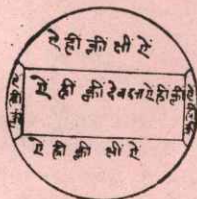 ऐं ह्रीं क्लीं श्रीं ऐं
ऐं ह्रीं क्लीं देवदत्त ऐं ह्रीं क्लीं
ऐं ह्रीं क्लीं श्रीं ऐं